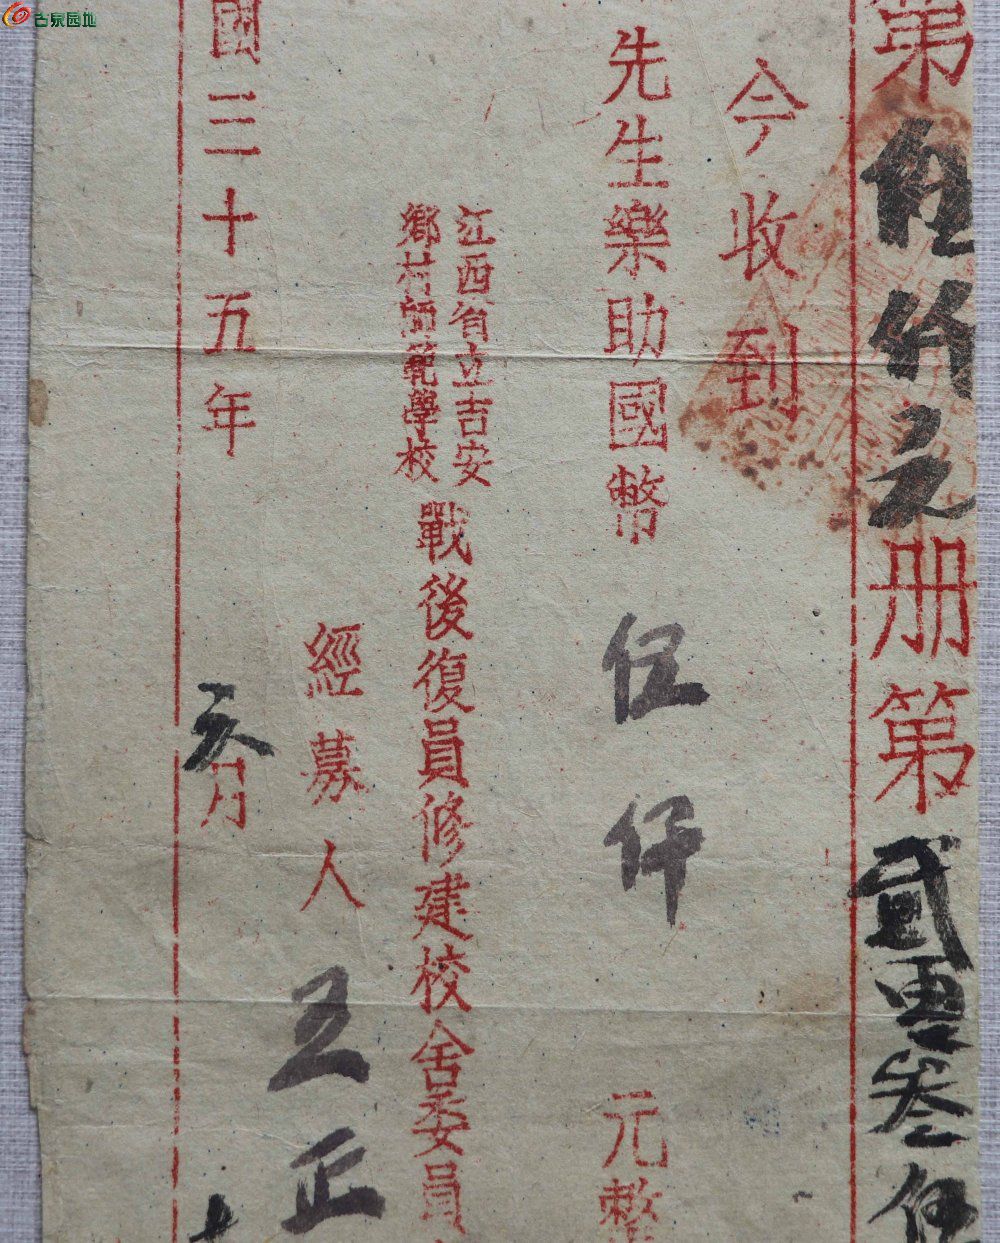 古泉园地
第伍仟元册第貳零叁伍
今收到
先生樂助國幣 伍仟 元整
江西省立吉安
鄉村師範學校
戰後復員修建校舍委員
經募人 王正
國三十五年 六月